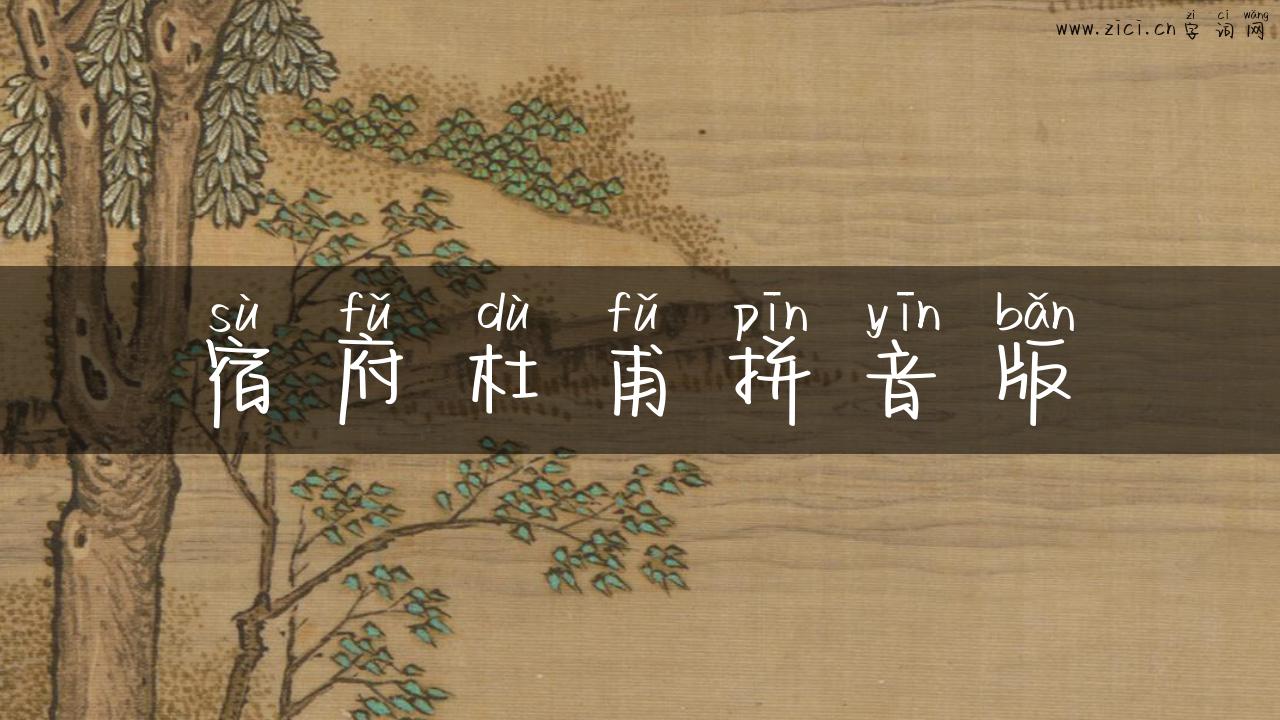 zì cí wǎng
www.zici.cn 字词网
sù fǔ dù fǔ pīn yīn bǎn
宿府杜甫拼音版